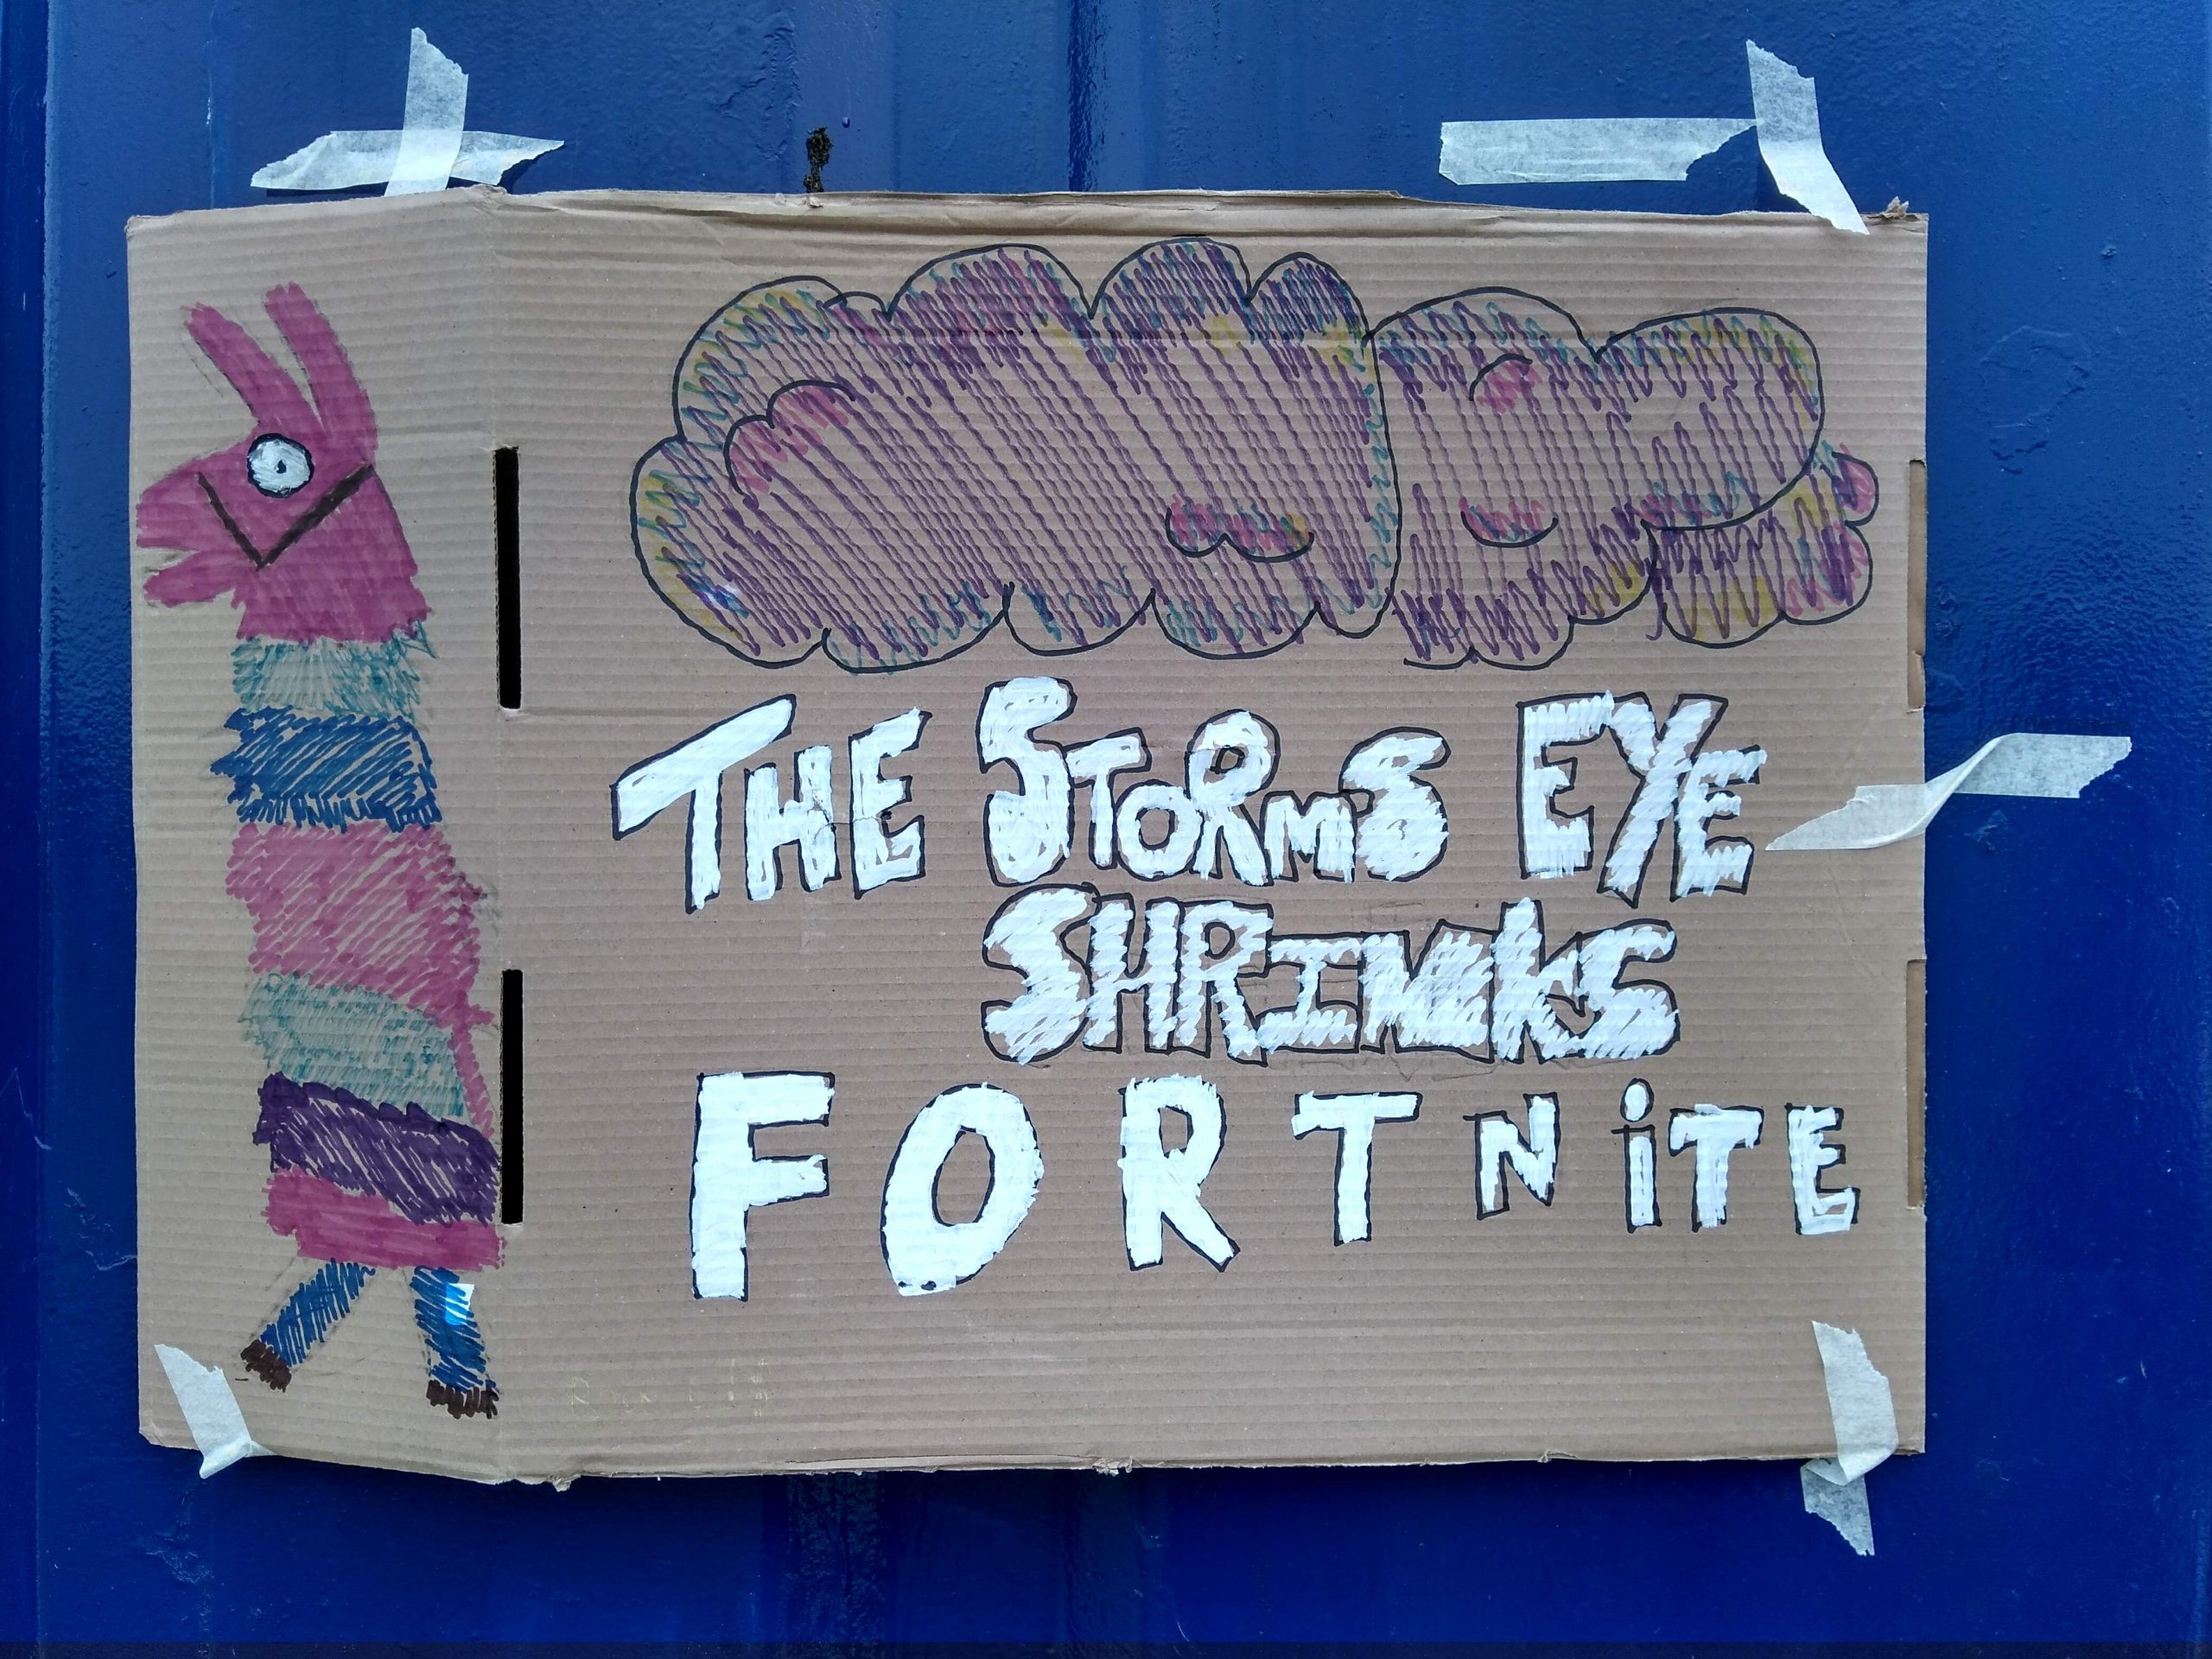 THE STORMS EYE
SHRINKS
FORTNiTE